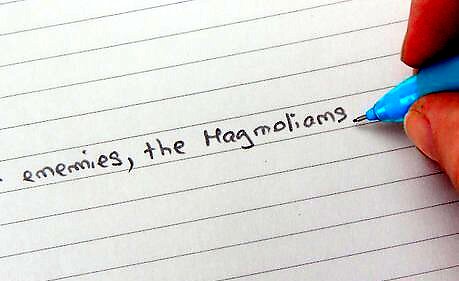 enemies, the Magmolians